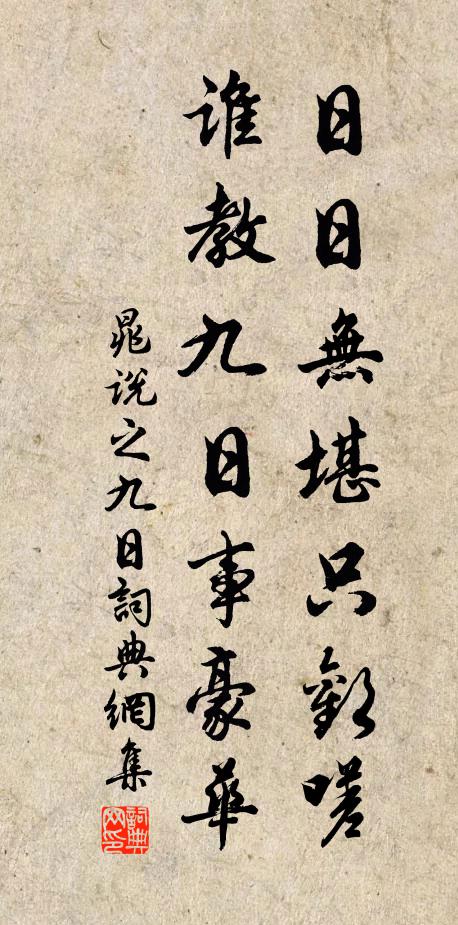 日日無堪只歎嗟
誰教九日事豪華
晁説之九日詞典網集
詞典
网印